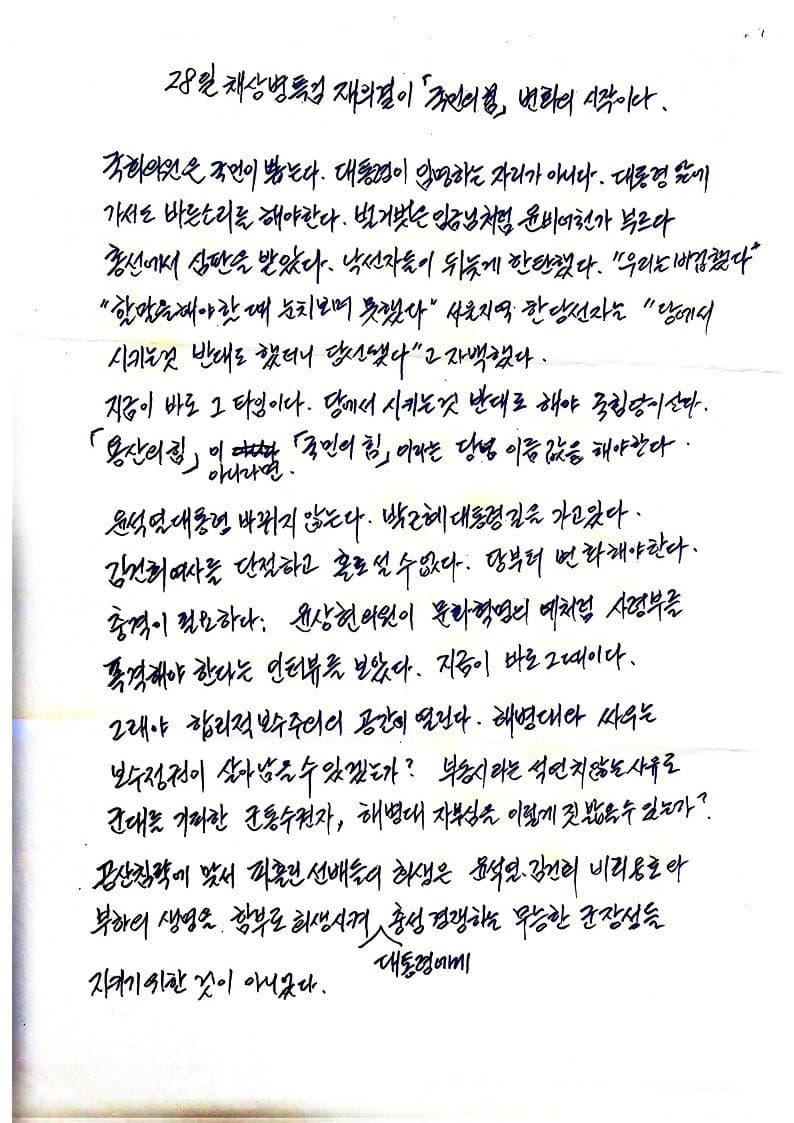 28일 채상병특검 재의결이 「국민의힘」 변화의 시작이다.
국회의원은 국민이 뽑는다. 대통령이 임명하는 자리가 아니다. 대통령 앞에
가서도 바른소리를 해야한다. 벌거벗은 임금님처럼 윤비어천가 부르다
총선에서 심판을 받았다. 낙선자들이 뒤늦게 한탄했다. "우리는 비겁했다"
"할말을해야할 때 눈치보며 못했다" 서울지역 한 당선자는 "당에서
시키는것 반대로 했더니 당선됐다"고 자백했다.
지금이 바로 그 타임이다. 당에서 시키는것 반대로 해야 국힘당이산다.
「용산의힘」이 아니라면 「국민의 힘」이라는 당명 이름값을 해야한다.
윤석열대통령 바뀌지 않는다. 박근혜대통령길을 가고있다.
김건희여사를 단절하고 홀로 설 수 없다. 당부터 변화해야한다.
충격이 필요하다. 윤상현의원이 문화혁명의 예처럼 사령부를
폭격해야 한다는 인터뷰를 보았다. 지금이 바로그때이다.
그래야 합리적보수주의의 공간이 열린다. 해병대와 싸우는
보수정권이 살아남을 수 있겠는가? 부동시라는 석연치않는사유로
군대를 기피한 군통수권자, 해병대 자부심을 이렇게 짓밟을수있는가?
공산침략에 맞서 피흘린선배들의 희생은 윤석열.김건희 비리옹호와
부하의 생명을 함부로 희생시켜 대통령에게 충성 경쟁하는 무능한 군장성들
지키기위한 것이 아니었다.